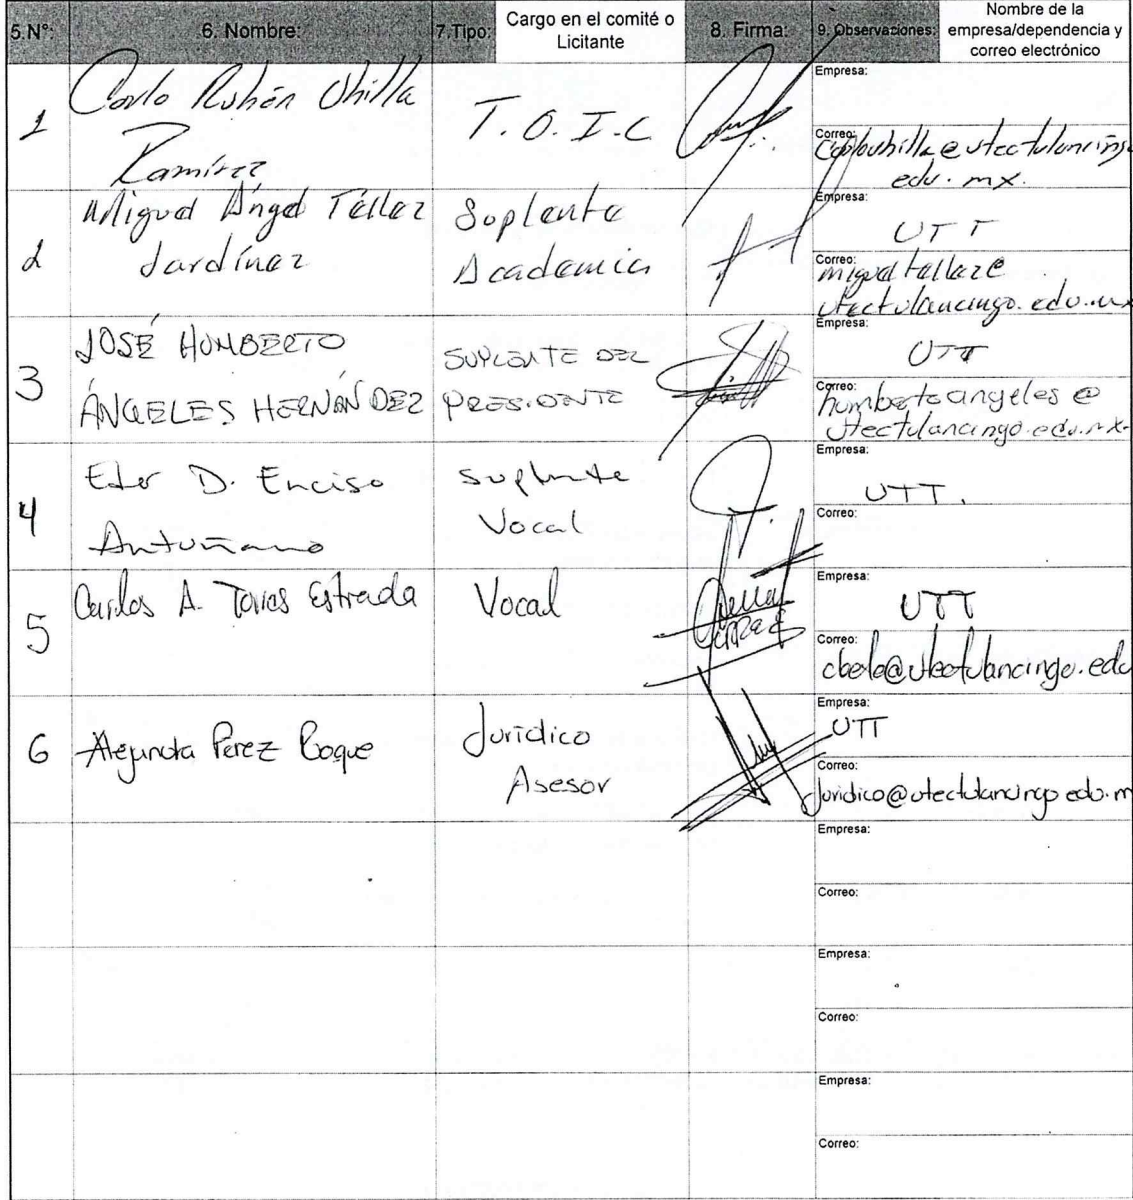 5.N°:
6. Nombre:
7.Tipo:
Cargo en el comité o
Licitante
8. Firma:
9. Observaciones:
Nombre de la
empresa/dependencia y
correo electrónico
1
Carlo Rubén Uhilla
Ramírez
T.O.I.C
Empresa:
Correo:
carlouhilla@utectulancingo
edu.mx.
2
Miguel Ángel Téllez
Jardínez
Suplente
Academia
Empresa:
UTT
Correo:
migueltellez@
utectulancingo.edu.mx
3
JOSÉ HUMBERTO
ÁNGELES HERNÁNDEZ
SUPLENTE DEL
PRESIDENTE
Empresa:
UTT
Correo:
humbertoangeles@
utectulancingo.edu.mx.
4
Eder D. Enciso
Antuñano
Suplente
Vocal
Empresa:
UTT.
Correo:
5
Carlos A. Torres Estrada
Vocal
Empresa:
UTT
Correo:
6
Alejandra Perez Roque
Jurídico
Asesor
Empresa:
UTT
Correo:
Juridico@utectulancingo.edu.m
Empresa:
Correo:
Empresa:
Correo:
Empresa:
Correo: